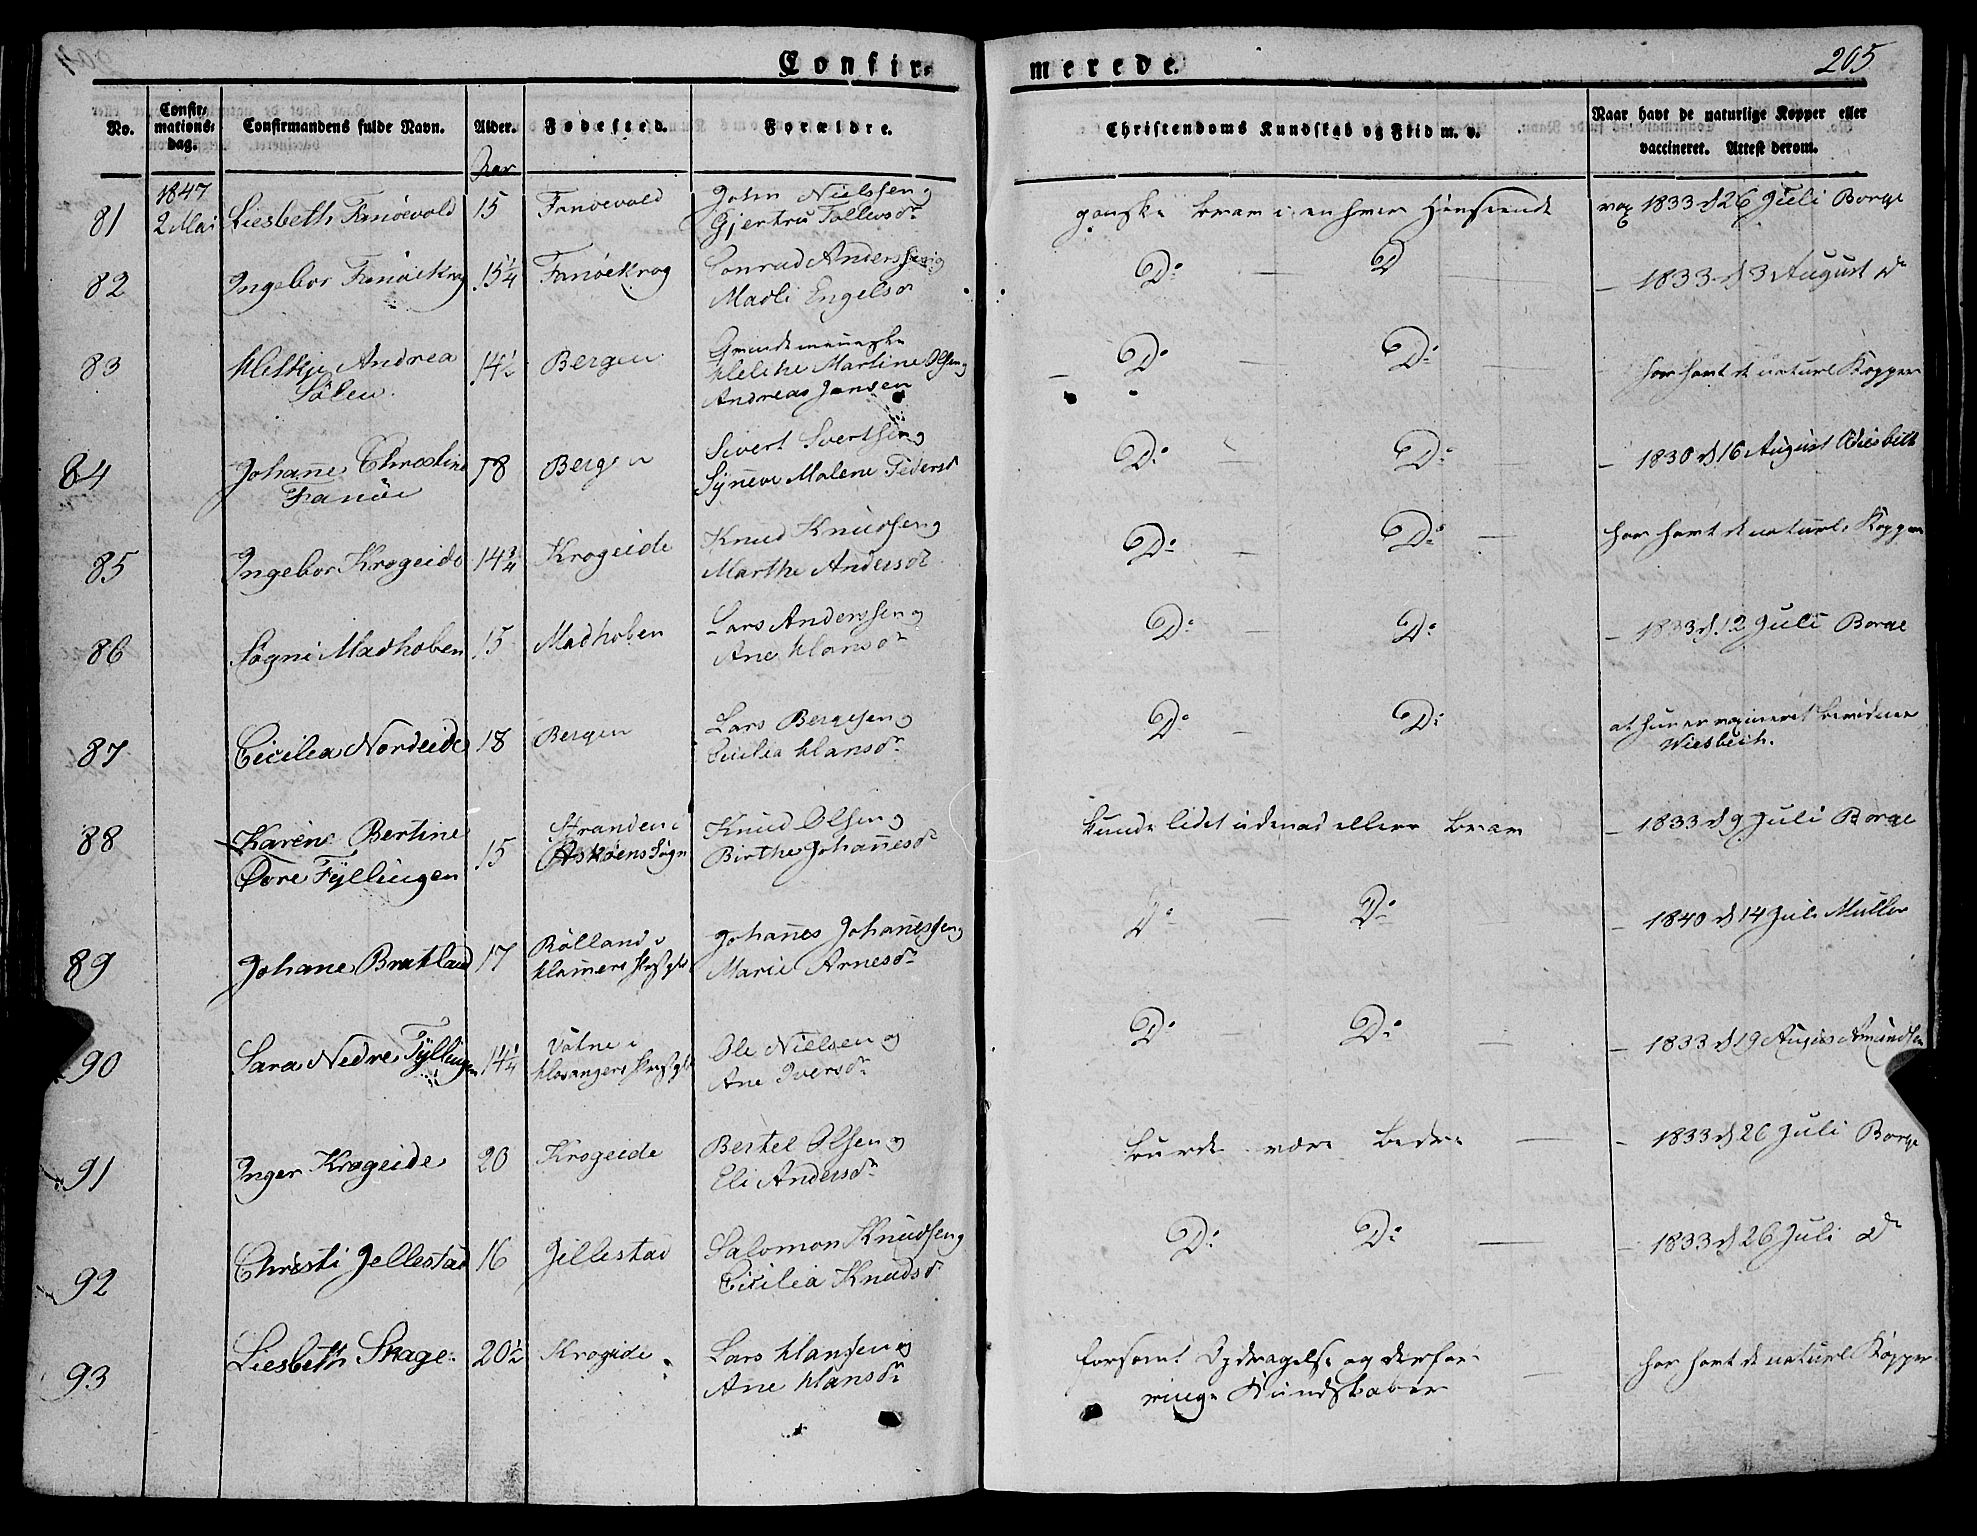 Confir-
merede.
205
No.
Confir-
mations-
dag.
Confirmandens fulde Navn.
Alder.
Fødested.
Forældre.
Christendoms Kundskab og Flid m. v.
Naar havt de naturlige Kopper eller
vaccineret. Attest derom.
Aar
81 1847 2 Mai Liesbeth Fanöevold 15 Fanoevold John Nielssen og
Gjertru Tollevsdr
ganske bram i enhver Henseende vac 1833 d 26 Juli Borge
82 Ingebor Fanöekrog 15 1/4 Fanöekrog Conrad Anderssen og
Madli Engelsdr
Do — D — — 1833 d 3 August do
83 Helkje Andrea 14 1/2 Bergen
Sölen
Helche Martine Olsen og
Andreas Jansen
— Do — Do — har havt de naturl Kopper
84 Johanne Christine 18 Bergen Sivert Sivertsen og
Fanöe
Synneve Malene Pedersdr
Do — Do — — 1830 d 16 August Wiesbech
85 Ingebor Krogeide 14 3/4 Krogeide Knud Knudsen og
Marthe Andersdr
Do — Do — har havt de naturl. Kopper
86 Sögni Madhoben 15 Madhoben Lars Anderssen og
Ane Hansdr
Do — Do — 1833 d. 12 Juli Borge
87 Cicilea Nordeide 18 Bergen Lars Bergesen og
Cicilia Hansdr
Do — Do at hun er vagineret bevidner
Wiesbech.
88 Karene Bertine 15 Stranden i Knud Olsen og
Övre Fyllingen Askøens Sogn Birthe Johannesdr
kunde lidet udenad ellers bram — 1833 d 9 Juli Borge
89 Johane Bratland 17 Rölland i Johannes Johannessen og
Hammers Præstgld Marie Arnesdr
Do — Do — — 1840 d 14 Juli Müller
90 Sara Nedre Fyllingen 14 1/4 Vatne i Ole Nielsen og
Hosangers Præstgld Ane Iversdr
Do — Do — — 1833 d 19 August Amundsen
91 Inger Krogeide 20 Krogeide Bertel Olsen og
Eli Andersdr
burde være bedre — — 1833 d 26 Juli Borge
92 Christi Jellestad 16 Jellestad Salomon Knudsen og
Cicilia Knudsdr
Do Do — — 1833 d 26 Juli do
93 Liesbeth Skage. 20 1/2 Krogeide Lars Hansen og
Ane Hansdr
forsömt Opdragelse og derfor
ringe Kundskaber — har havt de naturl Kopper